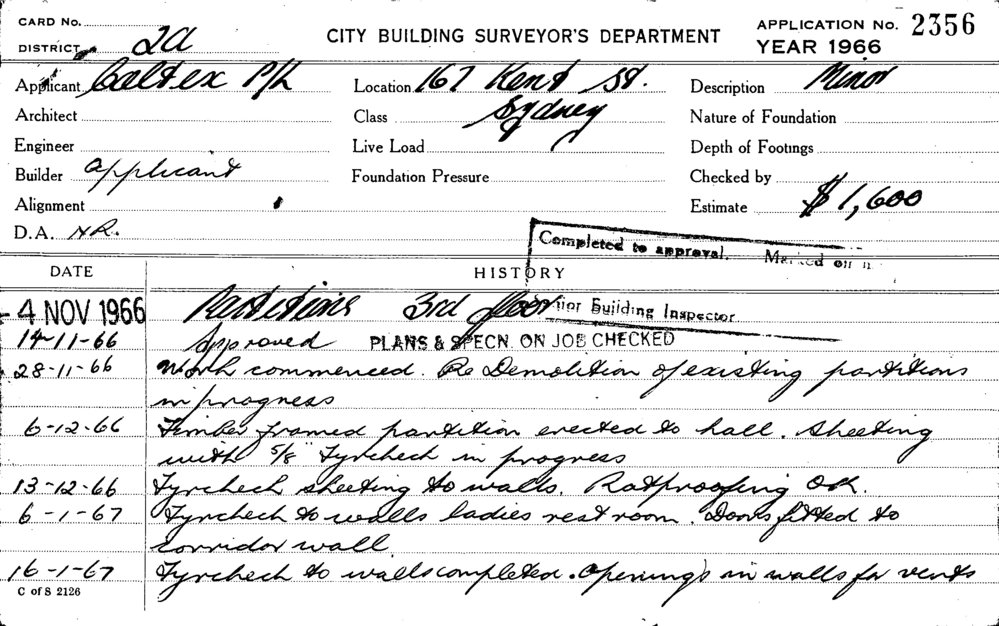 CARD No.
DISTRICT 2a
CITY BUILDING SURVEYOR'S DEPARTMENT
APPLICATION No. 2356
YEAR 1966
Applicant Caltex P/L
Location 167 Kent St.
Description Minor
Architect
Class Sydney
Nature of Foundation
Engineer
Live Load
Depth of Footings
Builder applicant
Foundation Pressure
Checked by
Alignment
Estimate $1,600
D.A. NR.
Completed to approval. Marked on
DATE HISTORY
Building Inspector
- 4 NOV 1966 Partitions 3rd floor
14-11-66 Approved PLANS & SPECN. ON JOB CHECKED
28-11-66 Work commenced. Re Demolition of existing partitions
in progress
6-12-66 Timber framed partition erected to hall. Sheeting
with 5/8" Fyrchech in progress
13-12-66 Fyrchech sheeting to walls. Ratproofing OK.
6-1-67 Fyrchech to walls ladies rest room. Doors fitted to
corridor wall.
16-1-67 Fyrchech to walls completed. Openings in walls for vents
C of S 2126